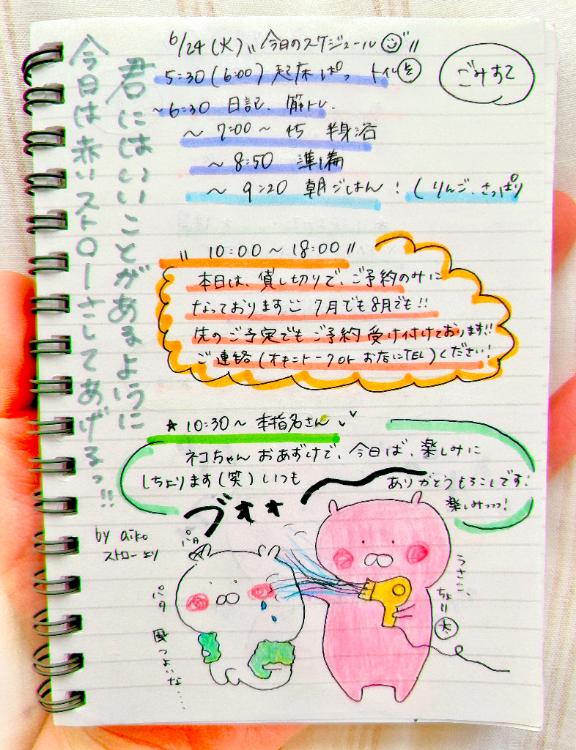 6/24(火)"今日のスケジュール"
ごみすて
5:30(6:00)起床ぱっ トイレ
~6:30 日記、筋トレ、
~7:00~45 半身浴
~8:50 準備
~9:20 朝ごはん!(りんご、さっぱり
"10:00~18:00"
本日は、貸し切りで、ご予約のみに
なっております 7月でも8月でも!!
先のご予定でもご予約受け付けております!!
ご連絡(オキニトークOr お店にTEL)ください!
★10:30~本指名さん
ネコちゃんおあずけで、今日は、楽しみに
しちょります(笑)いつも
ありがとうもろこしです!
楽しみっっっ!
ブォォ
君にはいいことがあるように
今日は赤いストローさしてあげるっ!!
by aiko
ストローより
パタ
パタ
風つよいな……
うさここ、
ちょい